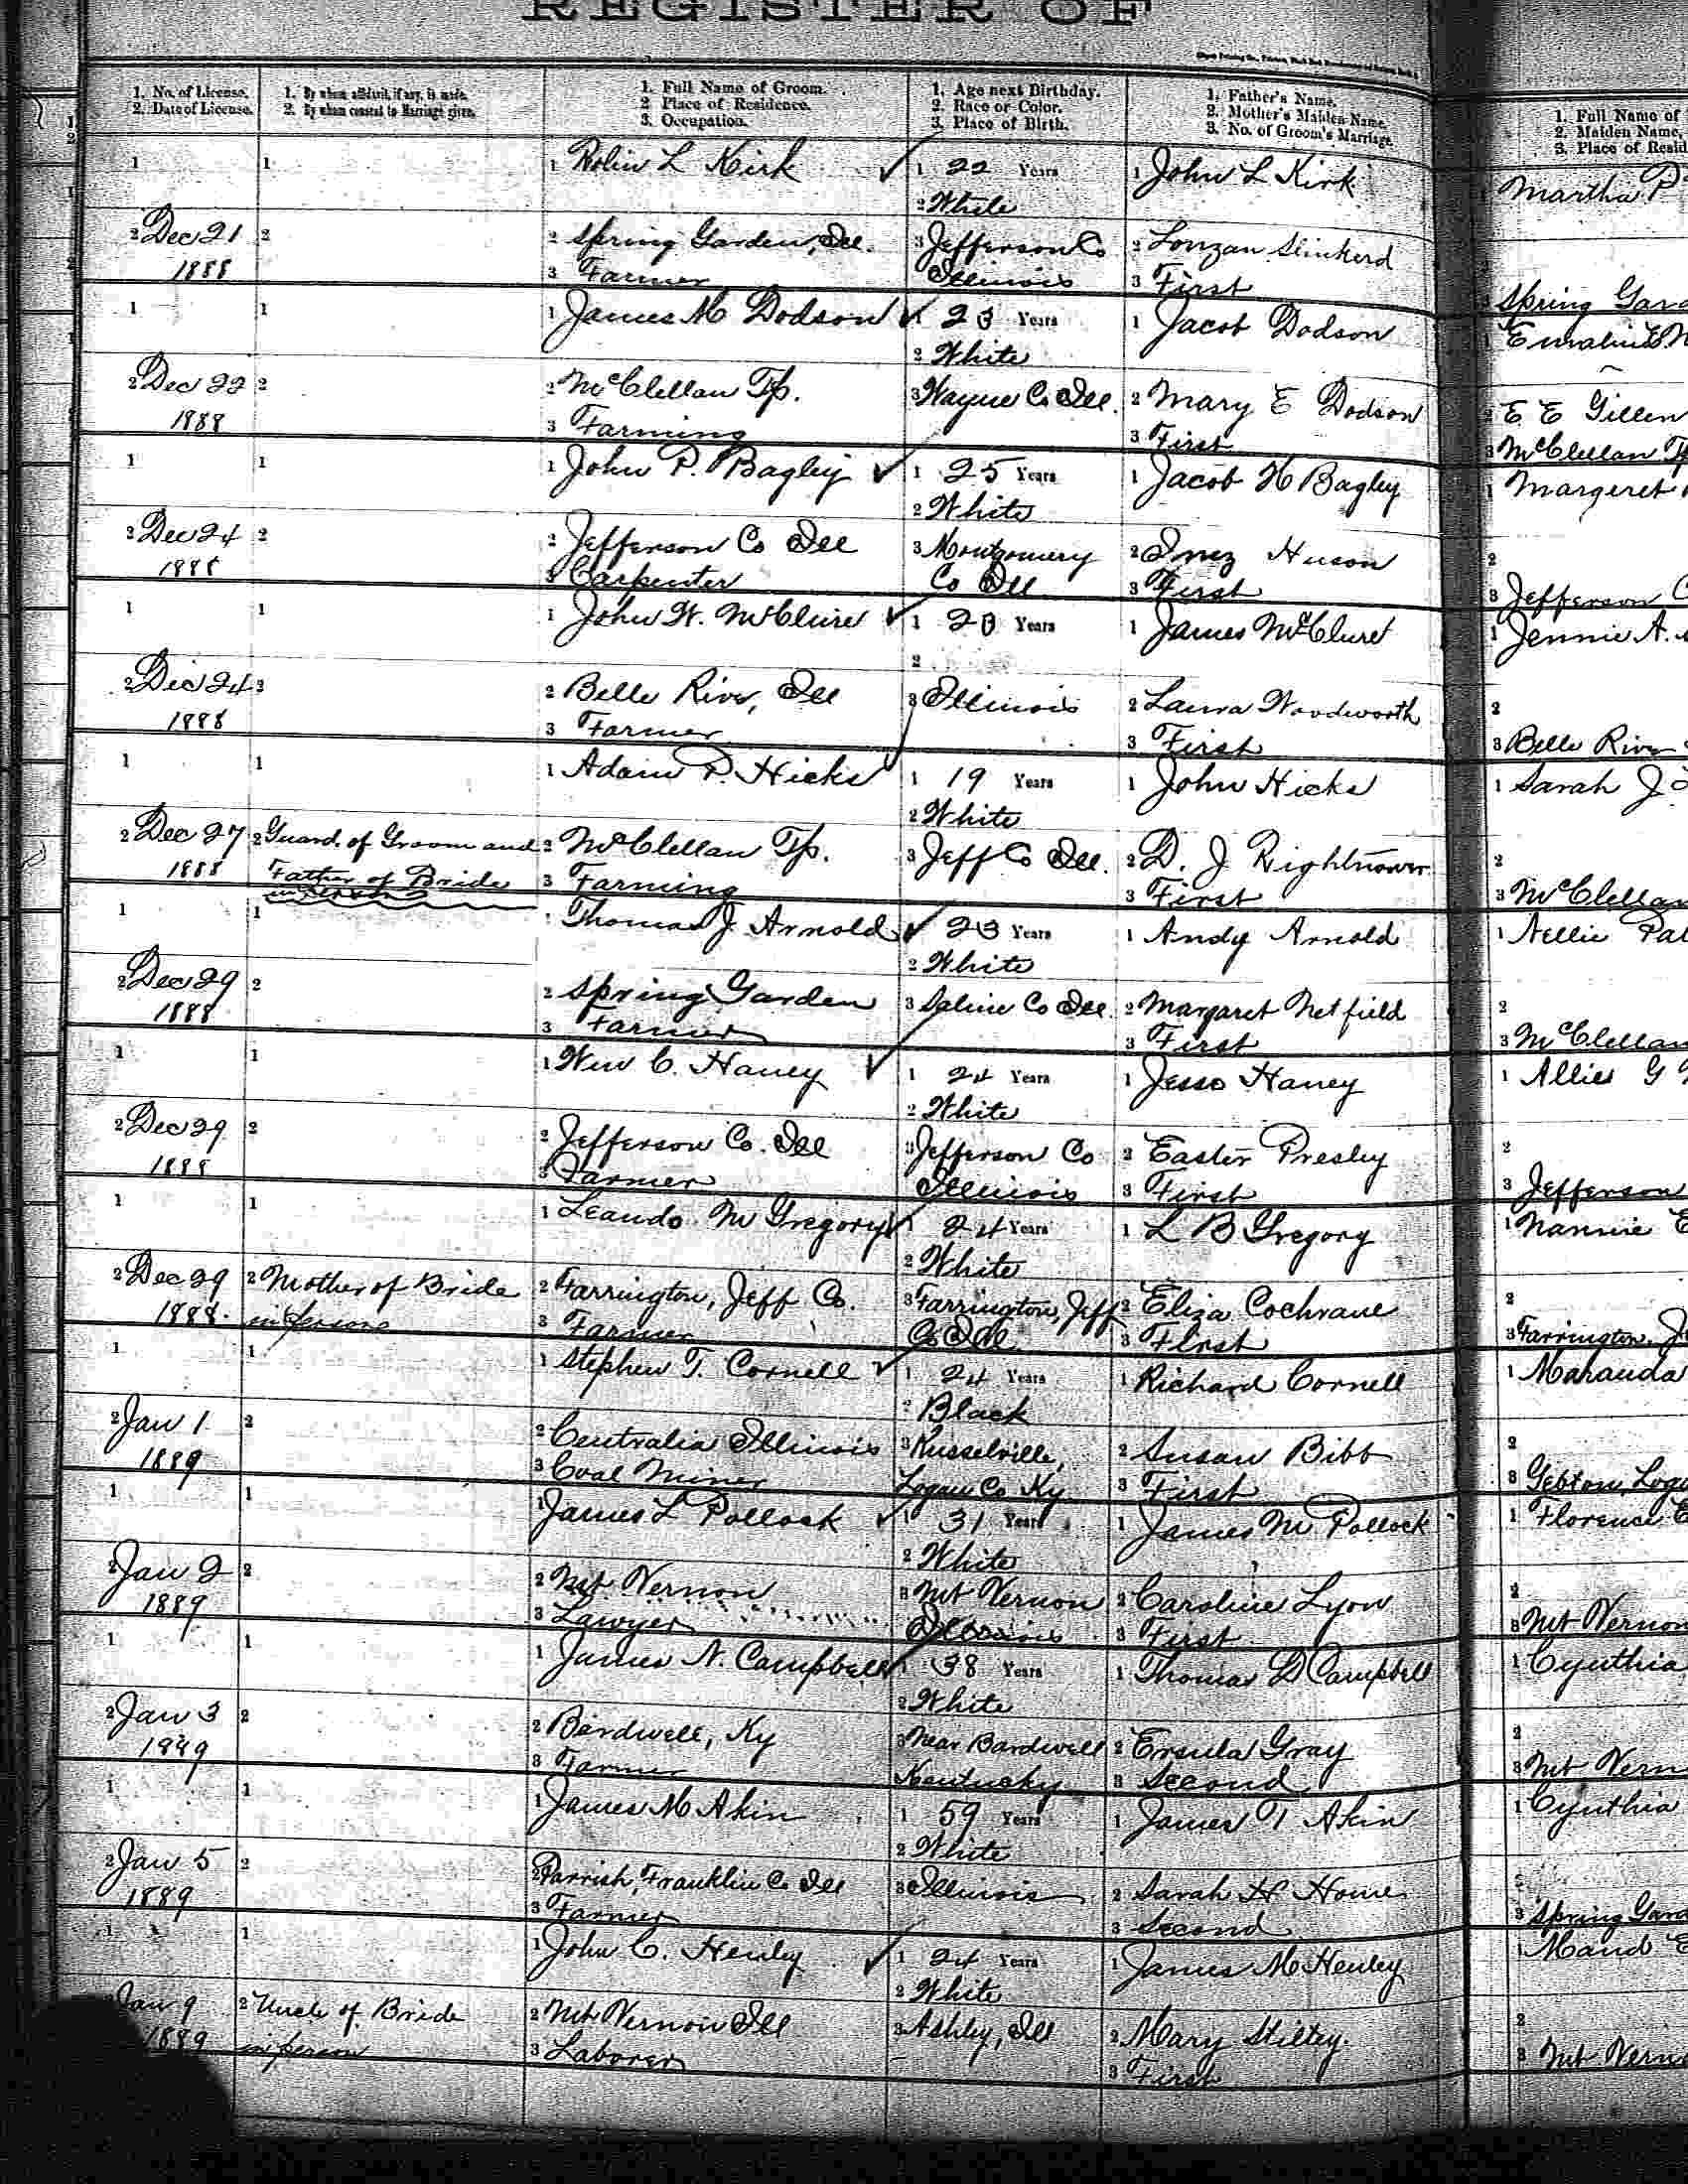 REGISTER OF
1. No. of License.
2. Date of License.
1. By whom affidavit, if any, is made.
2. By whom consent to Marriage given.
1. Full Name of Groom.
2 Place of Residence.
3. Occupation.
1. Age next Birthday.
2. Race or Color.
3. Place of Birth.
1. Father's Name.
2. Mother's Maiden Name.
3. No. of Groom's Marriage.
1. Full Name of
2. Maiden Name,
3. Place of Resid
1 1 1 Rolin L Kirk 1 22 Years 1 John L Kirk 1 Martha P
2 White
2 Dec 21 2 2 Spring Garden, Ill. 3 Jefferson Co 2 Louzan Slinkerd
1888 3 Farmer Illinois 3 First 3 Spring Gard
1 1 1 James M Dodson 1 23 Years 1 Jacob Dodson 1
2 White
2 Dec 22 2 2 McClellan Tp. 3 Wayne Co Ill. 2 Mary E Dodson 2 E E Gillen
1888 3 Farming 3 First 3 McClellan Tp
1 1 1 John P. Bagley 1 25 Years 1 Jacob H Bagley 1 Margeret
2 White
2 Dec 24 2 2 Jefferson Co Ill 3 Montgomery 2 Inez Huson 2
1888 3 Carpenter Co Ill 3 First 3 Jefferson C
1 1 1 John W. McClure 1 20 Years 1 James McClure 1 Jennie A.
2
2 Dec 24 2 2 Belle Rive, Ill 3 Illinois 2 Laura Woodworth 2
1888 3 Farmer 3 First 3 Belle Rive
1 1 1 Adam P. Hicks 1 19 Years 1 John Hicks 1 Sarah J
2 White
2 Dec 27 2 Guard. of Groom and 2 McClellan Tp. 3 Jeff Co Ill. 2 D. J Rightnowar 2
1888 Father of Bride 3 Farming 3 First 3 McClellan
in person
1 1 1 Thomas J Arnold 1 23 Years 1 Andy Arnold 1 Nellie Pat
2 White
2 Dec 29 2 2 Spring Garden 3 Saline Co Ill. 2 Margaret Netfield 2
1888 3 Farmer 3 First 3 McClellan
1 1 1 Wm C. Haney 1 24 Years 1 Jesse Haney 1 Allie G
2 White
2 Dec 29 2 2 Jefferson Co. Ill 3 Jefferson Co 2 Easter Presley 2
1888 3 Farmer Illinois 3 First 3 Jefferson
1 1 1 Leando M Gregory 1 24 Years 1 L B Gregory 1 Nannie E
2 White
2 Dec 29 2 Mother of Bride 2 Farrington, Jeff Co. 3 Farrington, Jeff 2 Eliza Cochrane 2
1888. in person 3 Farmer Co Ill 3 First 3 Farrington, J
1 1 1 Stephen T. Cornell 1 24 Years 1 Richard Cornell 1 Mahauda
2 Black
2 Jan 1 2 2 Centralia Illinois 3 Russelville, 2 Susan Bibb 2
1889 3 Coal Miner Logan Co Ky 3 First 3 Loga
1 1 1 James L Pollock 1 31 Years 1 James M Pollock 1 Florence E
2 White
2 Jan 2 2 2 Mt Vernon 3 Mt Vernon 2 Caroline Lyon 2
1889 3 Lawyer Illinois 3 First 3 Mt Vernon
1 1 1 James N. Campbell 1 38 Years 1 Thomas D Campbell 1 Cynthia
2 White
2 Jan 3 2 2 Bardwell, Ky 3 Near Bardwell 2 Ersula Gray 2
1889 3 Farmer Kentucky 3 Second 3 Mt Vern
1 1 1 James M Akin 1 59 Years 1 James T Akin 1 Cynthia
2 White
2 Jan 5 2 2 Parrish, Franklin Co Ill 3 Illinois 2 Sarah H Howe 2
1889 3 Farmer 3 Second 3 Spring Gard
1 1 1 John C. Henley 1 24 Years 1 James M Henley 1 Maud E
2 White
Jan 9 2 Uncle of Bride 2 Mt Vernon Ill 3 Ashley, Ill 2 Mary Stiltey. 2
1889 in person 3 Laborer 3 First 3 Mt Vern